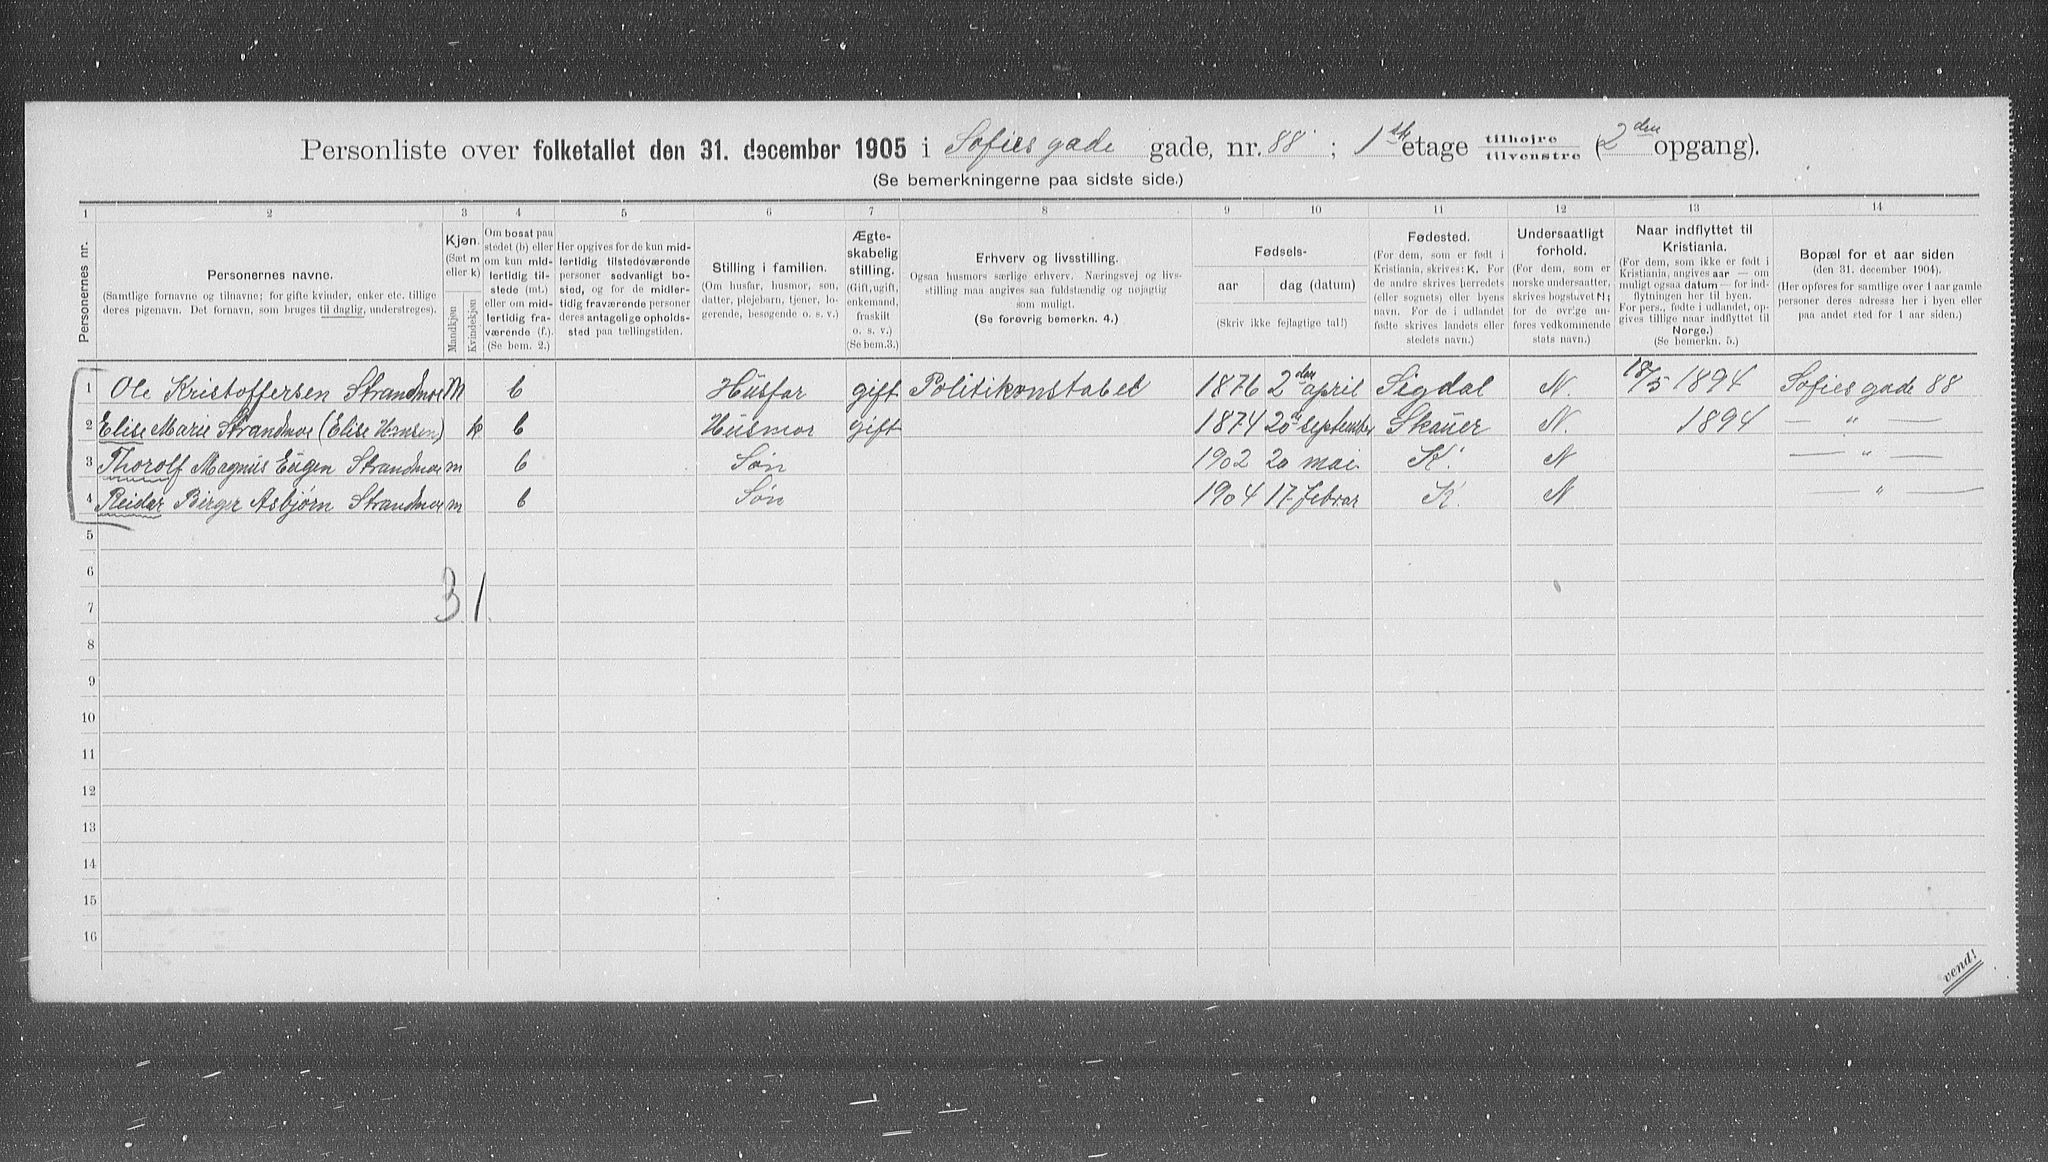 Personliste over folketallet den 31. december 1905 i Sofies gade gade, nr. 88; 1ste etage tilhøjre tilvenstre (2den opgang).
(Se bemerkningerne paa sidste side.)
1 2 3 4 5 6 7 8 9 10 11 12 13 14
Personernes nr.
Personernes navne.
(Samtlige fornavne og tilnavne; for gifte kvinder, enker etc. tillige
deres pigenavn. Det fornavn, som bruges til daglig, understreges).
Kjøn.
(Sæt m
eller k)
Mandkjøn
Kvindekjøn
Om bosat paa
stedet (b) eller
om kun mid-
lertidig til-
stede (mt.)
eller om mid-
lertidig fra-
værende (f.).
(Se bem. 2.)
Her opgives for de kun mid-
lertidig tilstedeværende
personer sedvanligt bo-
sted, og for de midler-
tidig fraværende personer
deres antagelige opholds-
sted paa tællingstiden.
Stilling i familien.
(Om husfar, husmor, søn,
datter, plejebarn, tjener, lo-
gerende, besøgende o. s. v.)
Ægte-
skabelig
stilling.
(Gift, ugift,
enkemand,
fraskilt
o. s. v.)
(Se bem.3.)
Erhverv og livsstilling.
Ogsaa husmors særlige erhverv. Næringsvej og livs-
stilling maa angives saa fuldstændig og nøjagtig
som muligt.
(Se forøvrig bemerkn. 4.)
Fødsels-
aar
dag (datum)
(Skriv ikke fejlagtige tal!)
Fødested.
(For dem, som er født i
Kristiania, skrives: K. For
de andre skrives herredets
(eller sognets) eller byens
navn. For de i udlandet
fødte skrives landets eller
stedets navn.)
Undersaatligt
forhold.
(For dem, som er
norske undersaatter,
skrives bogstavet N;
for de øvrige an-
føres vedkommende
stats navn.)
Naar indflyttet til
Kristiania.
(For dem, som ikke er født i
Kristiania, angives aar — om
muligt ogsaa datum — for ind-
flytningen her til byen.
For pers., fødte i udlandet, op-
gives tillige naar indflyttet til
Norge.)
(Se bemerkn. 5.)
Bopæl for et aar siden
(den 31. december 1904).
(Her opføres for samtlige over 1 aar gamle
personer deres adresse her i byen eller
paa andet sted for 1 aar siden.)
1 Ole Kristoffersen Strandmoe M b Husfar gift Politikonstabel 1876 2den april Sigdal N. 18/5 1894 Sofies gade 88
2 Elise Marie Strandmoe (Elise Hansen) k b Husmor gift 1874 20de september Skauer N. 1894 — " —
3 Thorolf Magnus Eugen Strandmoe m b Søn 1902 20 mai K. N — " —
4 Reidar Birger Asbjørn Strandmoe m b Søn 1904 17 Februar K. N — " —
5
6
3 1
7
8
9
10
11
12
13
14
15
16
vend!